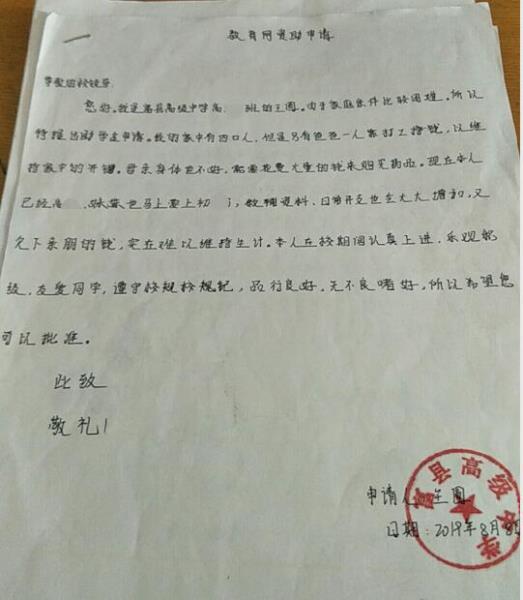 教育网资助申请
尊敬的校领导:
您好。我是富县高级中学高 班的王圆。由于家庭条件比较困难,所以
特提出助学金申请。我的家中有四口人,但是只有爸爸一人靠打工挣钱,以维
持家中的开销。母亲身体也不好,常需花费大量的钱来购买药品。现在本人
已经高 妹妹也马上要上初 了,教辅资料、日常开支也在大大增加,又
欠下亲朋的钱,实在难以维持生计。本人在校期间认真上进,乐观积
极,友爱同学,遵守校规校规纪,品行良好,无不良嗜好,所以希望您
可以批准。
此致
敬礼!
申请人 王圆
日期:2019年8月8日
富县高级中学